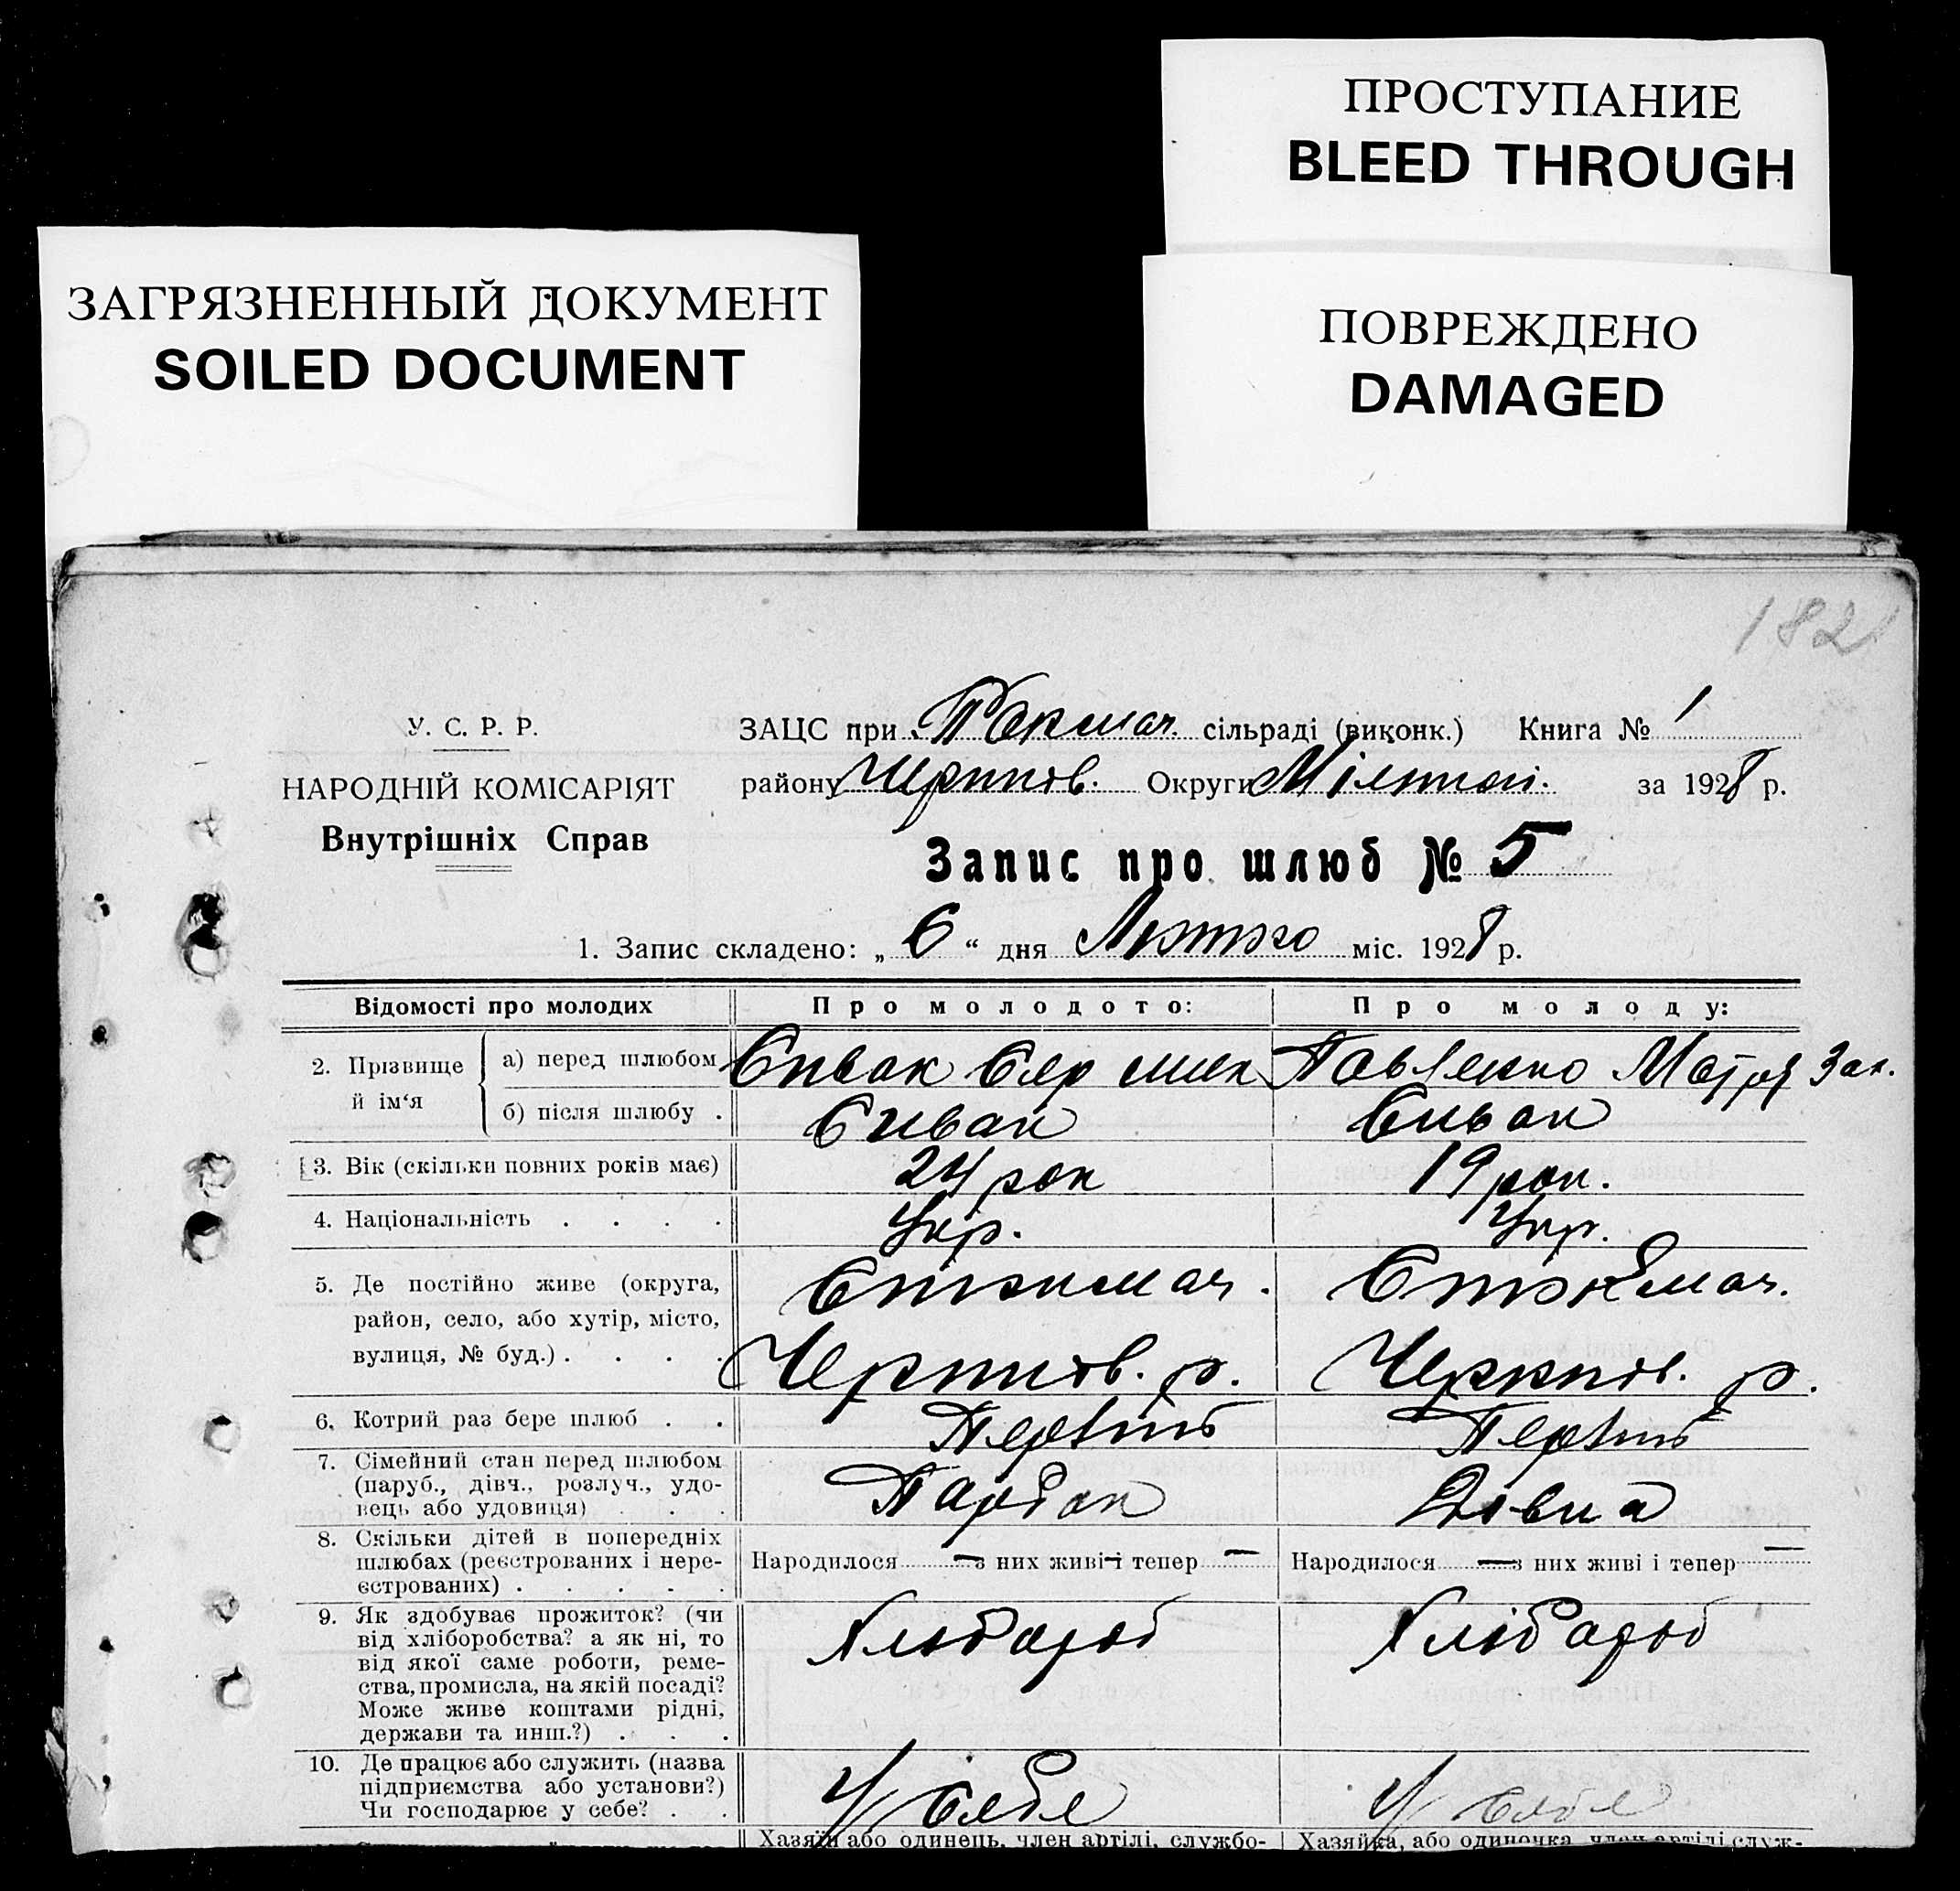 ПРОСТУПАНИЕ
BLEED THROUGH
ЗАГРЯЗНЕННЫЙ ДОКУМЕНТ
SOILED DOCUMENT
ПОВРЕЖДЕНО
DAMAGED
182
У. С. Р. Р.
НАРОДНІЙ КОМІСАРІЯТ
Внутрішніх Справ
ЗАЦС при Токмач. сільраді (виконк.) Книга № 1
району Черниг. Округи за 1928 р.
Запис про шлюб № 5
1. Запис складено: „ 6 “ дня Лютого міс. 1928 р.
Відомості про молодих Про молодого: Про молоду:
2. Прізвище й ім‘я
а) перед шлюбом Співак Павленко Зах.
б) після шлюбу . Співак Співак
3. Вік (скільки повних років має) 24 рок 19 рок.
4. Національність . . . . Укр. Укр.
5. Де постійно живе (округа,
район, село, або хутір, місто,
вулиця, № буд.) . . . .
р. р.
6. Котрий раз бере шлюб . . Первий Первий
7. Сімейний стан перед шлюбом
(паруб., дівч., розлуч., удо-
вець або удовиця) . . . Парубок Дівка
8. Скільки дітей в попередніх
шлюбах (реєстрованих і нере-
єстрованих) . . . . .
Народилося — з них живі і тепер — Народилося — з них живі і тепер —
9. Як здобуває прожиток? (чи
від хліборобства? а як ні, то
від якої саме роботи, реме-
ства, промисла, на якій посаді?
Може живе коштами рідні,
держави та инш.?) . . .
Хлібороб Хлібороб
10. Де працює або служить (назва
підприємства або установи?)
Чи господарює у себе? . .
У себе У себе
Хазяїн або одинець, член артілі, службо- Хазяйка, або одиночка, член артілі служ-